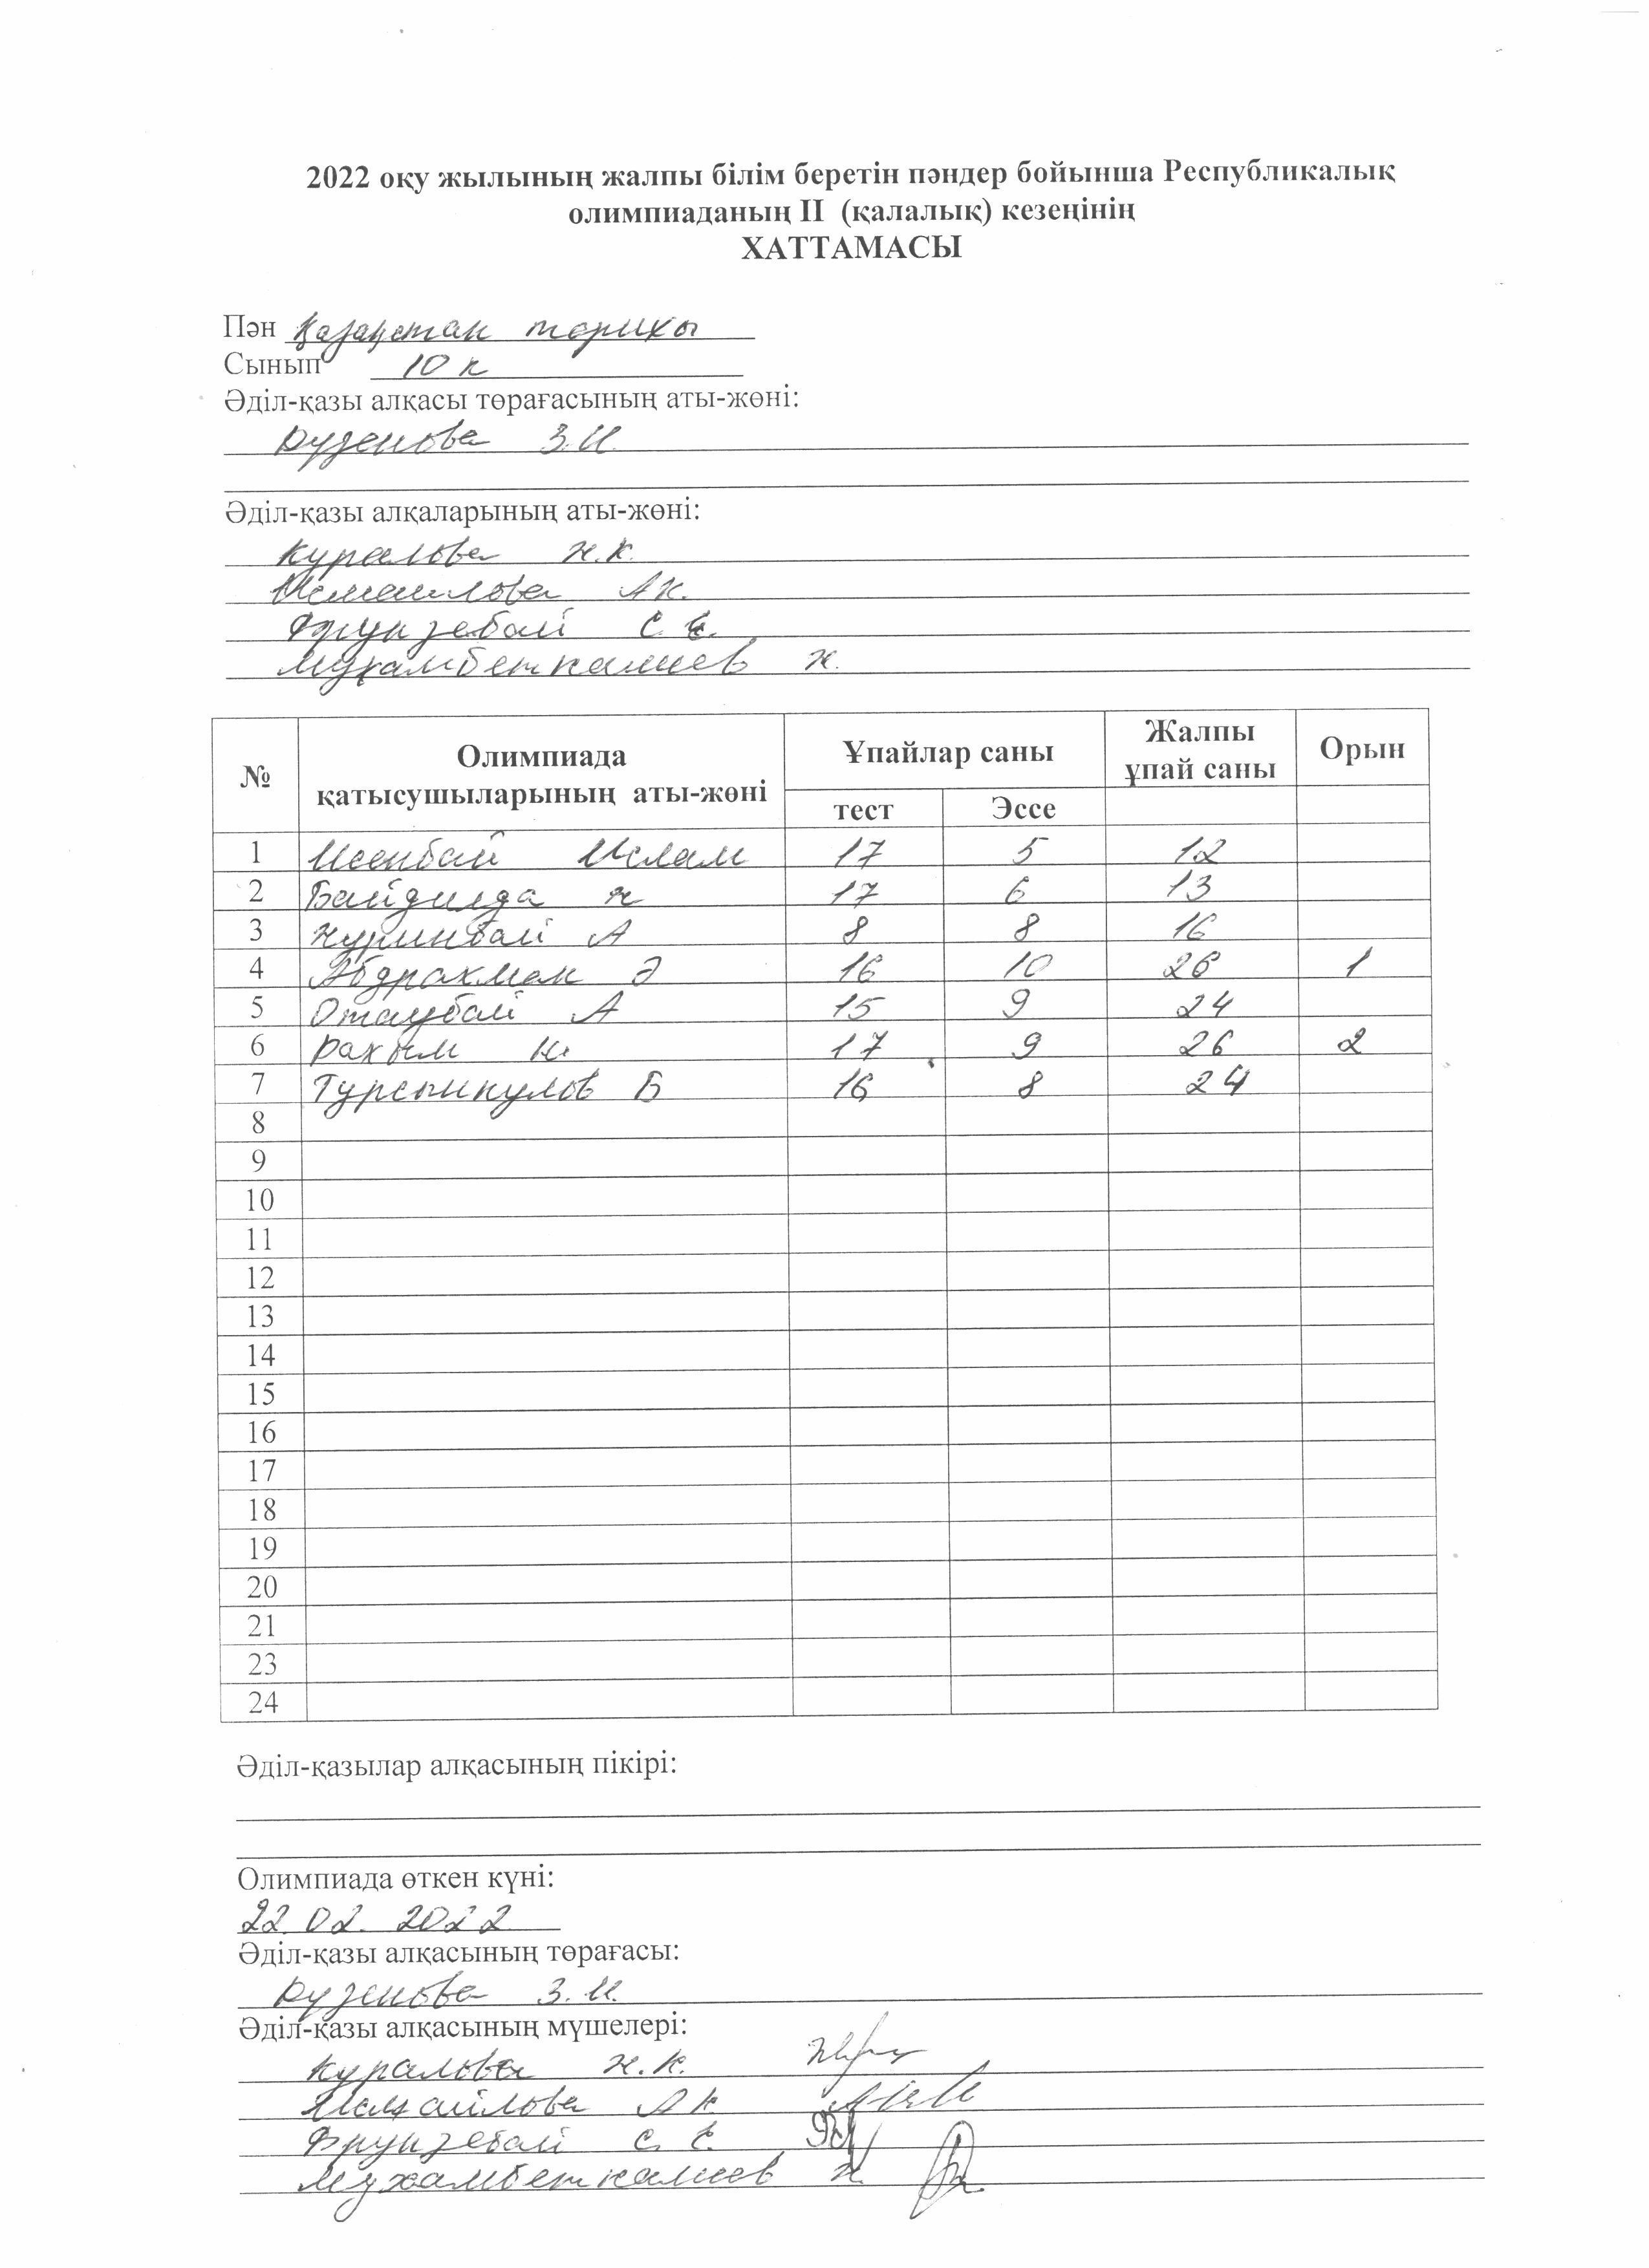 2022 оқу жылының жалпы білім беретін пәндер бойынша Республикалық
олимпиаданың II (қалалық) кезеңінің
ХАТТАМАСЫ
Пән Қазақстан тарихы
Сынып 10 к
Әділ-қазы алқасы төрағасының аты-жөні:
Рузенова З.И.
Әділ-қазы алқаларының аты-жөні:
Куралова Н.К.
Исмаилова А К.
Фрунзебай С. Е.
Мухамбеткалиев Н.
№ Олимпиада қатысушыларының аты-жөні Ұпайлар саны Жалпы ұпай саны Орын
тест Эссе
1 Исенбай Ислам 17 5 12
2 Байдилда Н 17 6 13
3 Нуринбай А 8 8 16
4 Абдрахман Ә 16 10 26 1
5 Отаубай А 15 9 24
6 Рахым 17 9 26 2
7 Турсынкулов Б 16 8 24
8
9
10
11
12
13
14
15
16
17
18
19
20
21
23
24
Әділ-қазылар алқасының пікірі:
Олимпиада өткен күні:
22.02. 2022
Әділ-қазы алқасының төрағасы:
Рузенова З. И.
Әділ-қазы алқасының мүшелері:
Куралова Н.К.
Исмайлова А К
Фрунзебай С. Е.
Мухамбеткалиев Н.